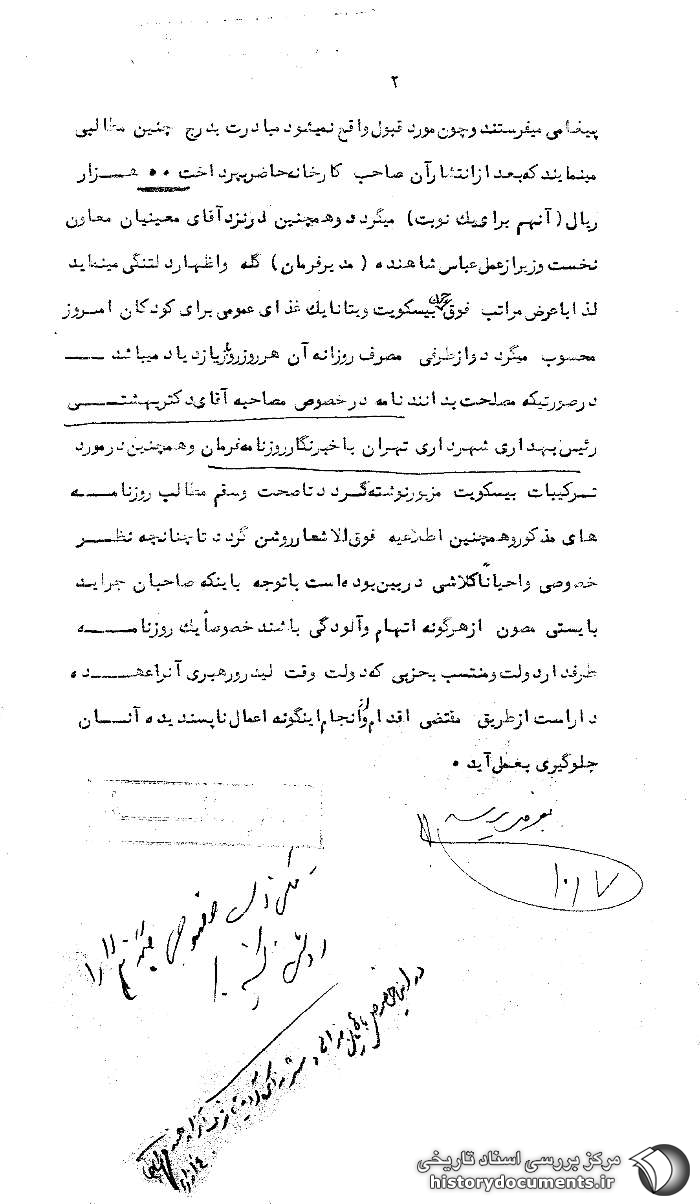 ۲
پیغامی میفرستند و چون مورد قبول واقع نمیشود مبادرت بدرج چنین مطالبی
مینمایند که بعد از انتشار آن صاحب کارخانه حاضر بپرداخت ۰۰ هـزار
ریال (آنهم برای یك نوبت) میگردد و همچنین در نزد آقای معینیان معاون
نخست وزیر از عمل عباس شاهنده (مدیر فرمان) گله و اظهار دلتنگی مینماید
لذا با عرض مراتب فوق چون بیسکویت ویتانا یك غذای عمومی برای کودکان امـروز
محسوب میگردد و از طرفی مصرف روزانه آن هر روز رو بازدیاد میباشد
در صورتیکه مصلحت بدانند نامه در خصوص مصاحبه آقای دکتر بهشتـی
رئیس بهداری شهرداری تهران با خبرنگار روزنامه فرمان و همچنین در مورد
تـرکیبات بیسکویت مزبور نوشته گـردد تا صحت و سقم مطالب روزنامـه
های مذکور و همچنین اطلاعیه فوق الاشعار روشن گردد تا چنانچه نظـر
خصوصی و احیاناً کلاشی در بین بوده است با توجه باینکه صاحبان جراید
بایستی مصون از هرگونه اتهام و آلودگی باشند خصوصاً یك روزنامـه
طرفدار دولت و منتسب بحزبی که دولت وقت لیدر و رهبری آنرا عهـده
دار است از طریق مقتضی اقدام و از انجام اینگونه اعمال ناپسندیده آنـان
جلوگیری بعمل آید ۰
بعرض برسد
۱۰/۷
در این خصوص با
مرکز بررسی اسناد تاریخی
historydocuments.ir